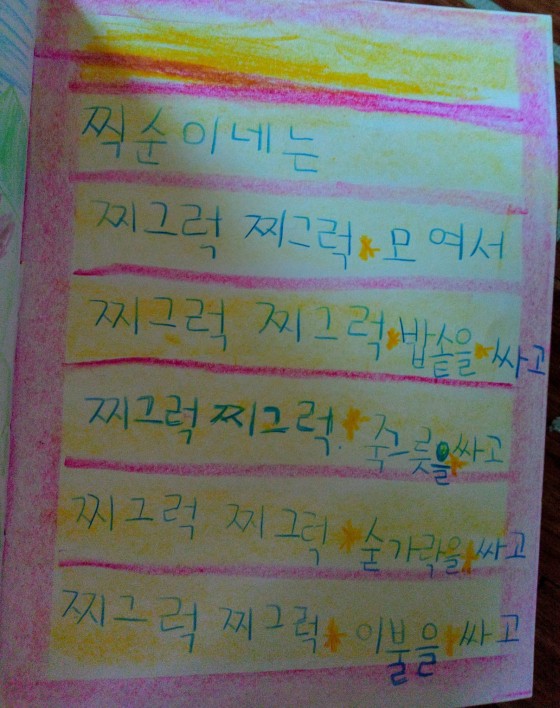 찍순이네는
찌그럭 찌그럭 모여서
찌그럭 찌그럭 밥솥을 싸고
찌그럭 찌그럭. 죽그릇을 싸고
찌그럭 찌그럭 숟가락을 싸고
찌그럭 찌그럭 이불을 싸고